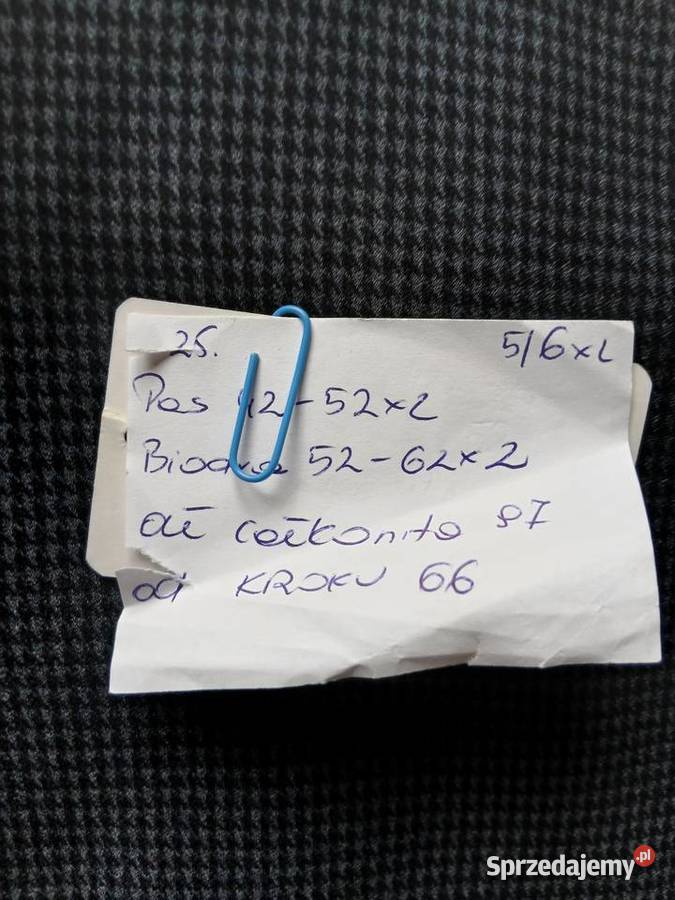 25. 5/6xL
Pas 42-52x2
Biodra 52-62x2
dł całkowita 97
od KROKU 66
Sprzedajemy.pl